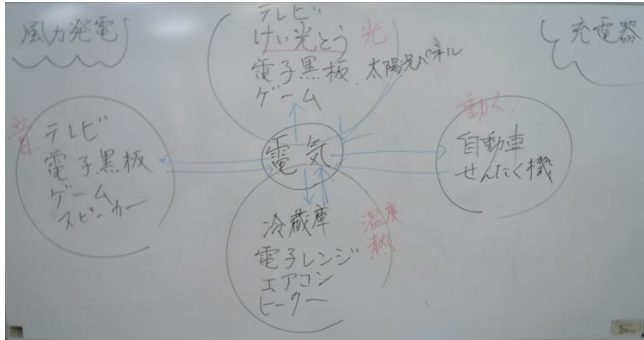 風力発電
テレビ
けい光とう
光
電子黒板
太陽光パネル
ゲーム
充電器
音
テレビ
電子黒板
ゲーム
スピーカー
電気
動く
自動車
せんたく機
冷蔵庫
温度
熱
電子レンジ
エアコン
ヒーター